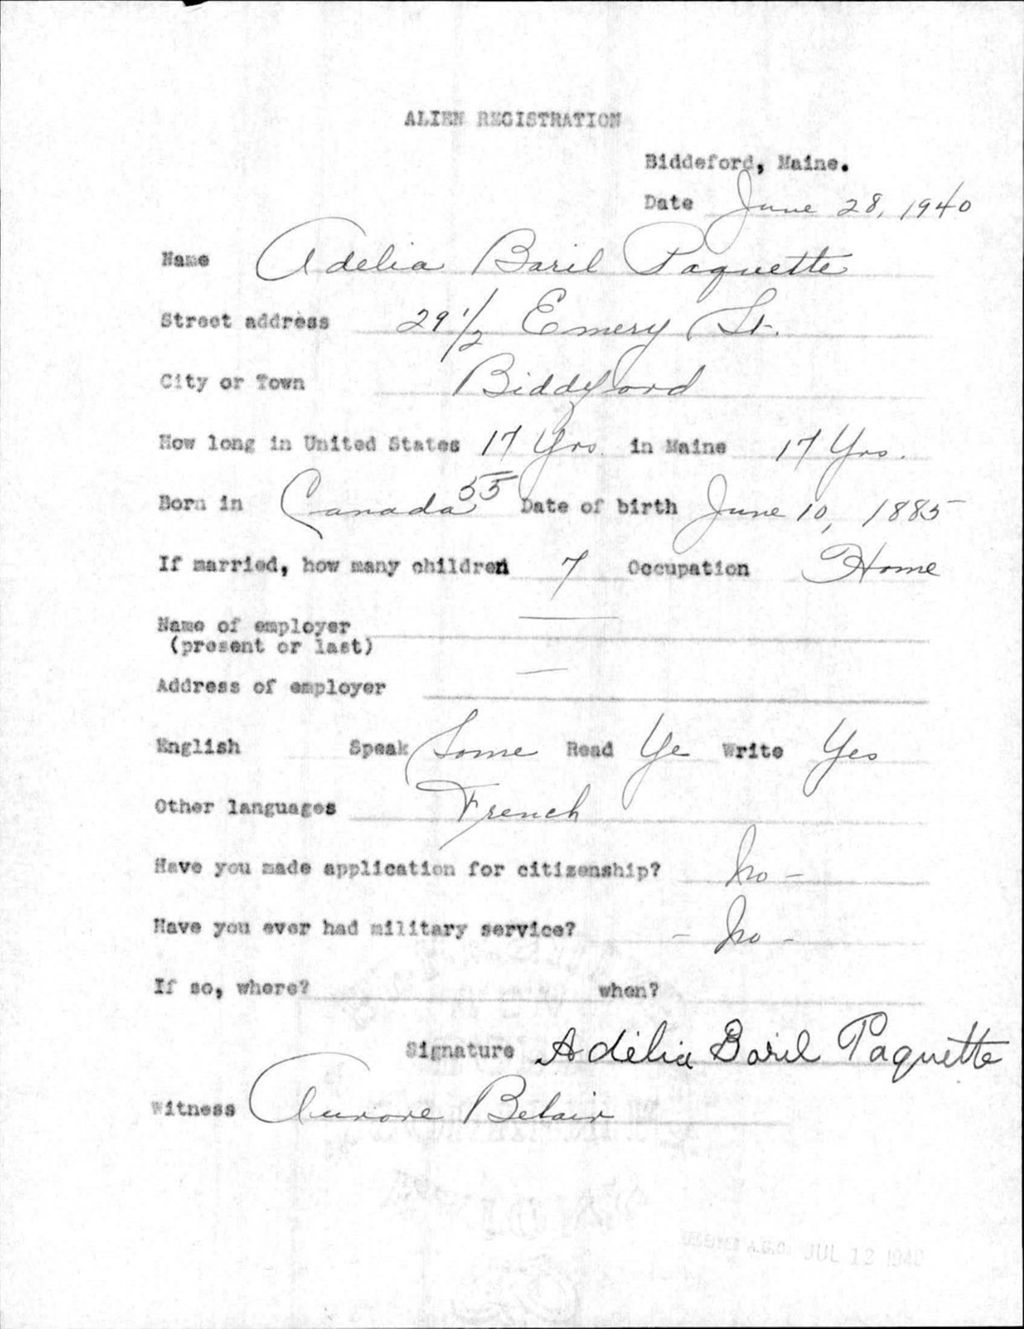 ALIEN REGISTRATION
Biddeford, Maine.
Date June 28, 1940
Name Adelia Baril Paquette
Street address 29 1/2 Emery St.
City or Town Biddeford
How long in United States 17 Yrs. in Maine 17 Yrs.
Born in Canada 55 Date of birth June 10, 1885
If married, how many children 7 Occupation Home
Name of employer —
(present or last)
Address of employer —
English Speak Some Read Ye Write Yes
Other languages French
Have you made application for citizenship? No -
Have you ever had military service? - No -
If so, where? when?
Signature Adélia Baril Paquette
Witness Aurore Belair
A.G.O. JUL 12 1940